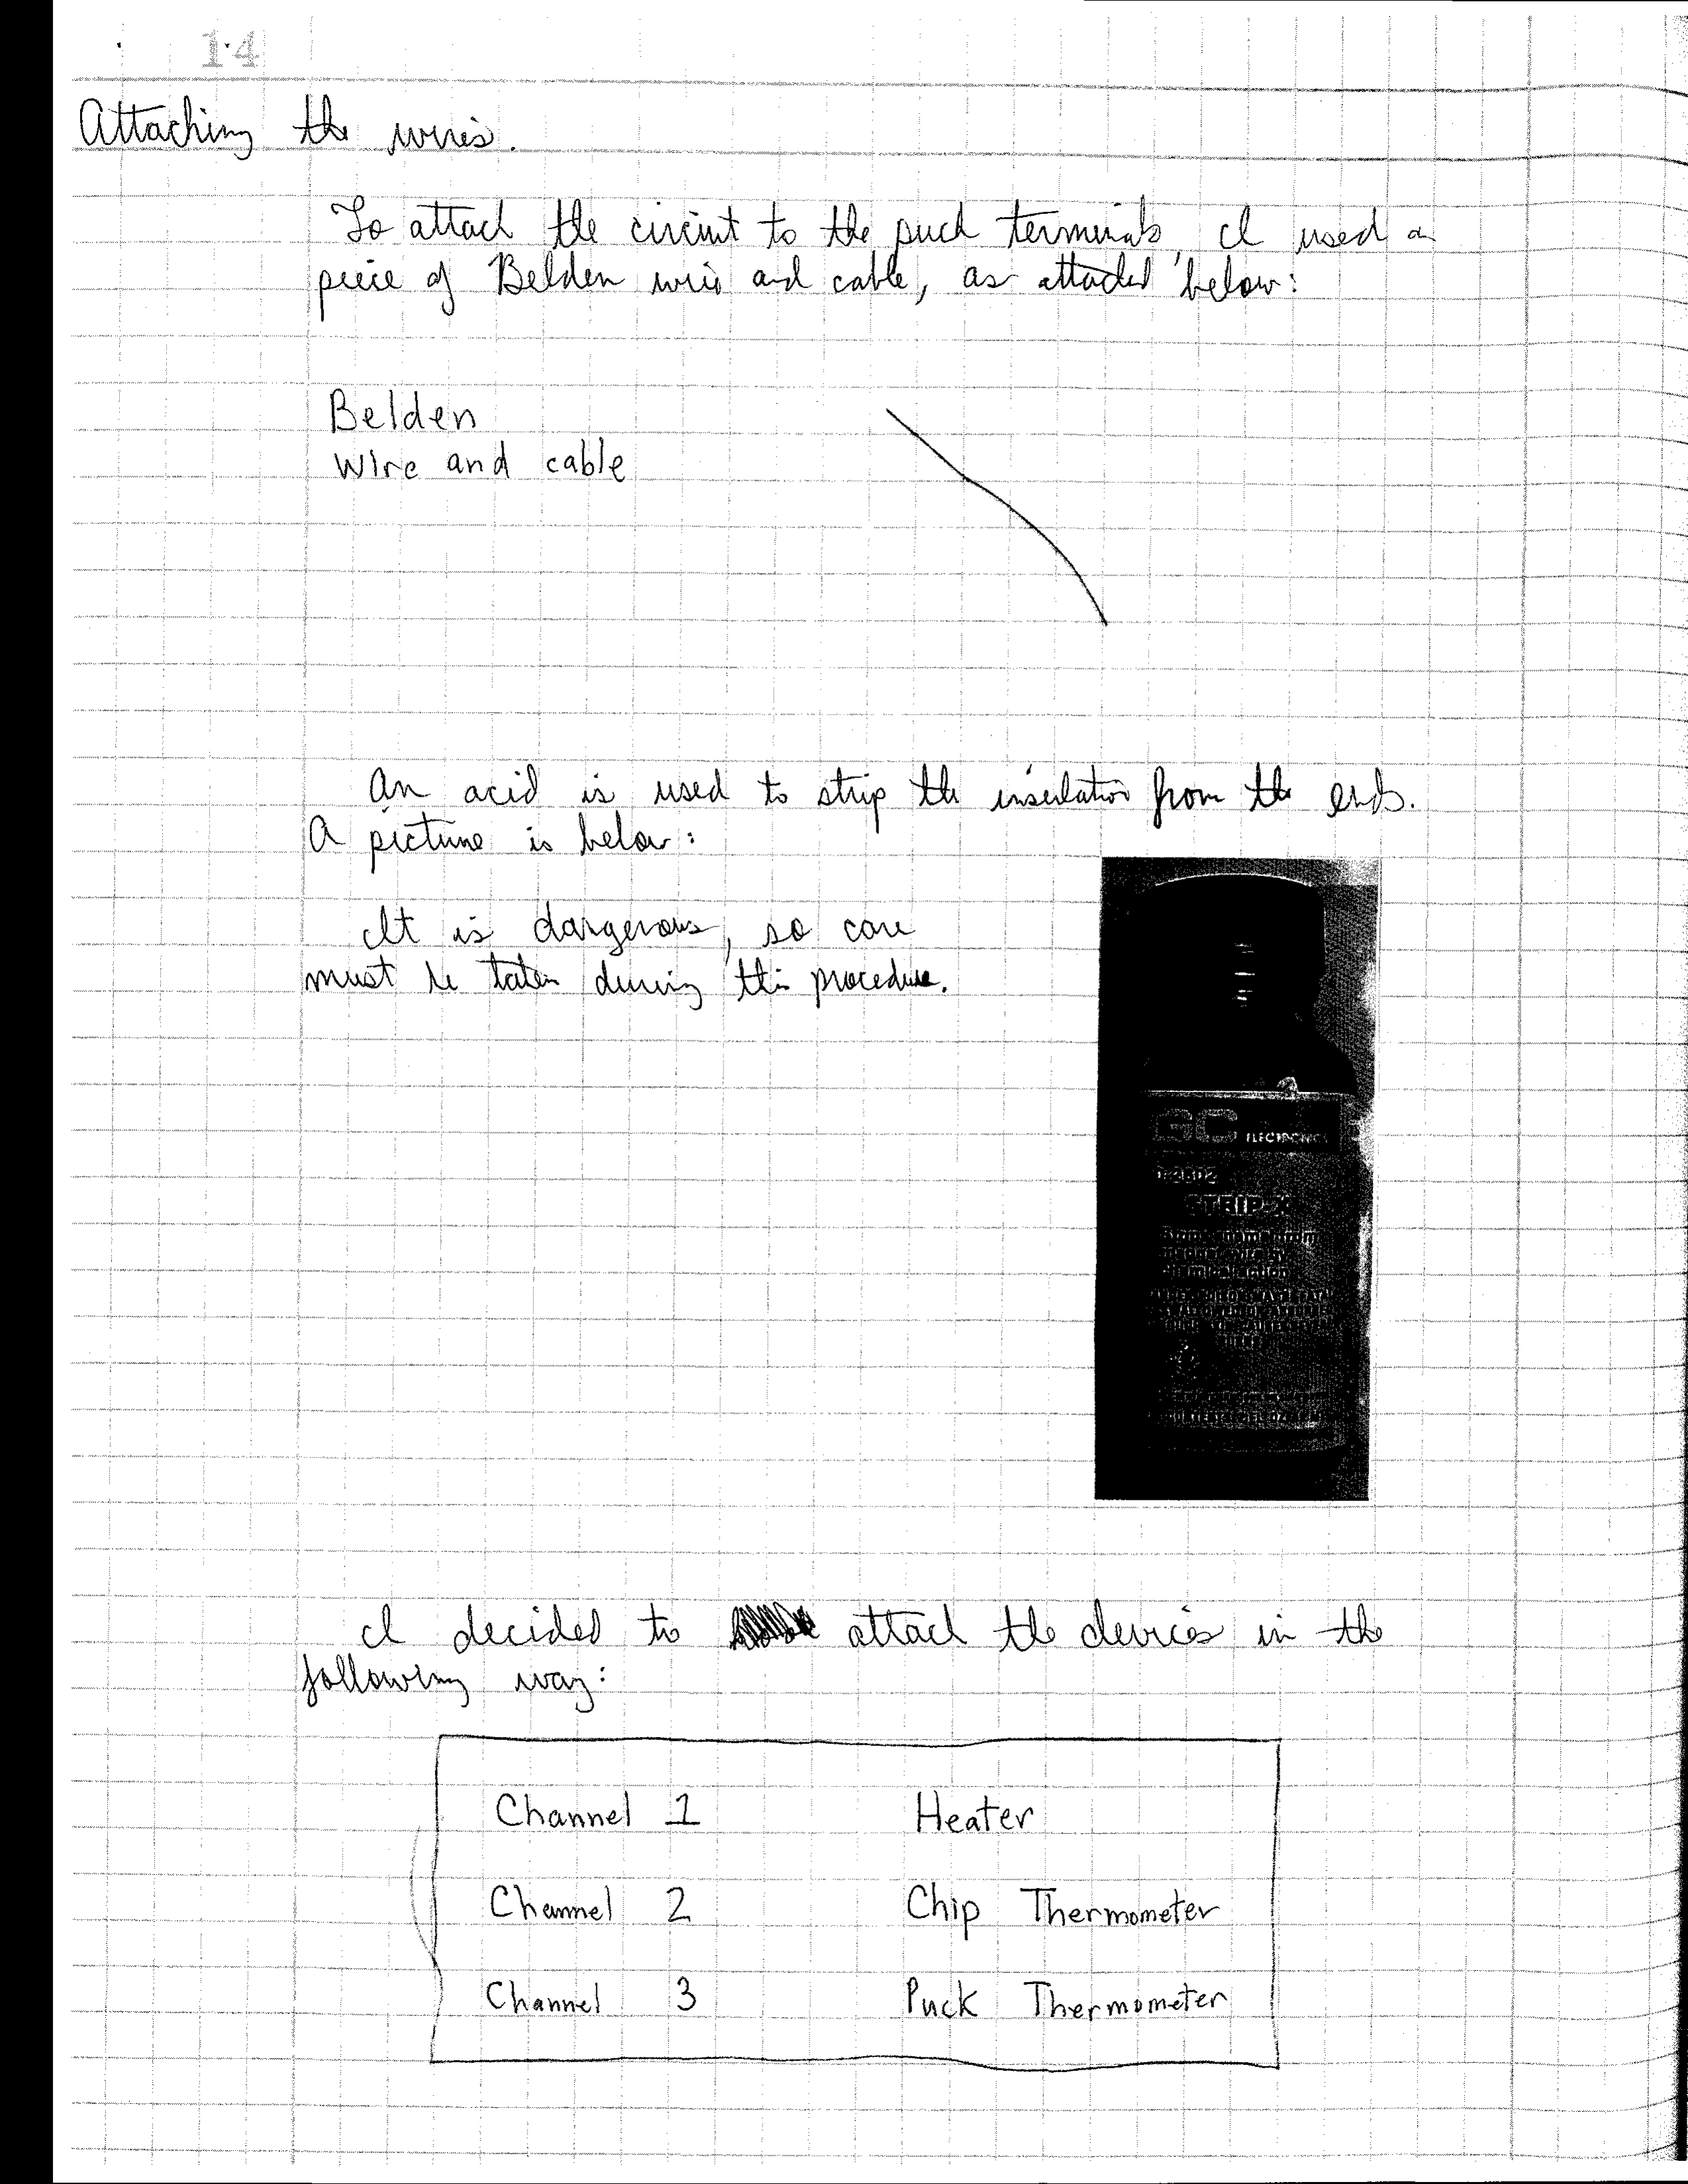 14
Attaching the wires.
To attach the circuit to the puck terminals, I used a
piece of Belden wire and cable, as attached below:
Belden
Wire and cable
An acid is used to strip the insulation from the ends.
A picture is below:
It is dangerous, so care
must be taken during this procedure.
GC ELECTRONICS
STRIP-X
chemical action
I decided to attach the devices in the
following way:
Channel 1 Heater
Channel 2 Chip Thermometer
Channel 3 Puck Thermometer